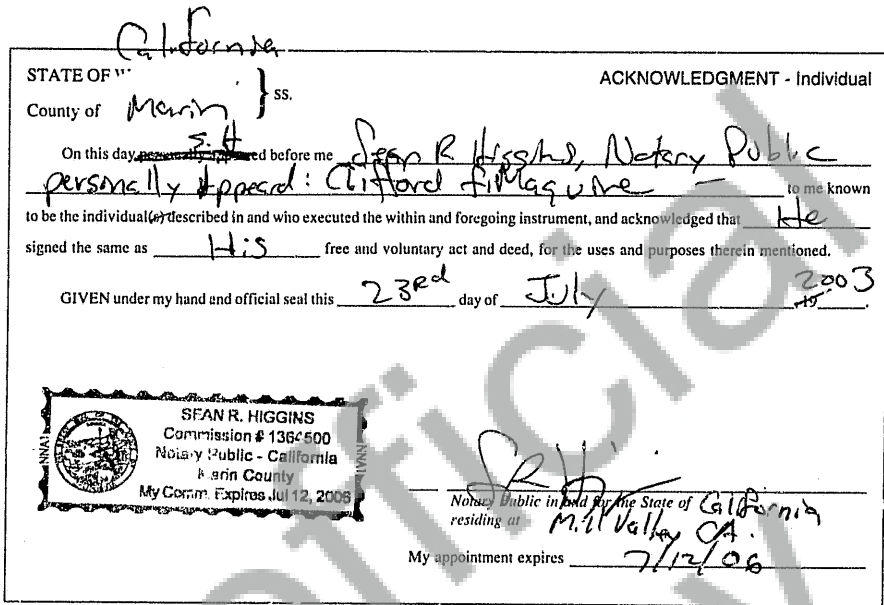 California
STATE OF W
ACKNOWLEDGMENT - Individual
County of Marin } ss.
S.H
On this day personally appeared before me Sean R Higgins, Notary Public
personally Appeard: Clifford — to me known
to be the individual(s) described in and who executed the within and foregoing instrument, and acknowledged that He
signed the same as His free and voluntary act and deed, for the uses and purposes therein mentioned.
GIVEN under my hand and official seal this 23rd day of July 2003
19
SEAN R. HIGGINS
Commission # 1364500
Notary Public - California
Marin County
My Comm. Expires Jul 12, 2006
NNA1
NNA1
Notary Public in and for the State of California
residing at Mill Valley CA.
My appointment expires 7/12/06
official